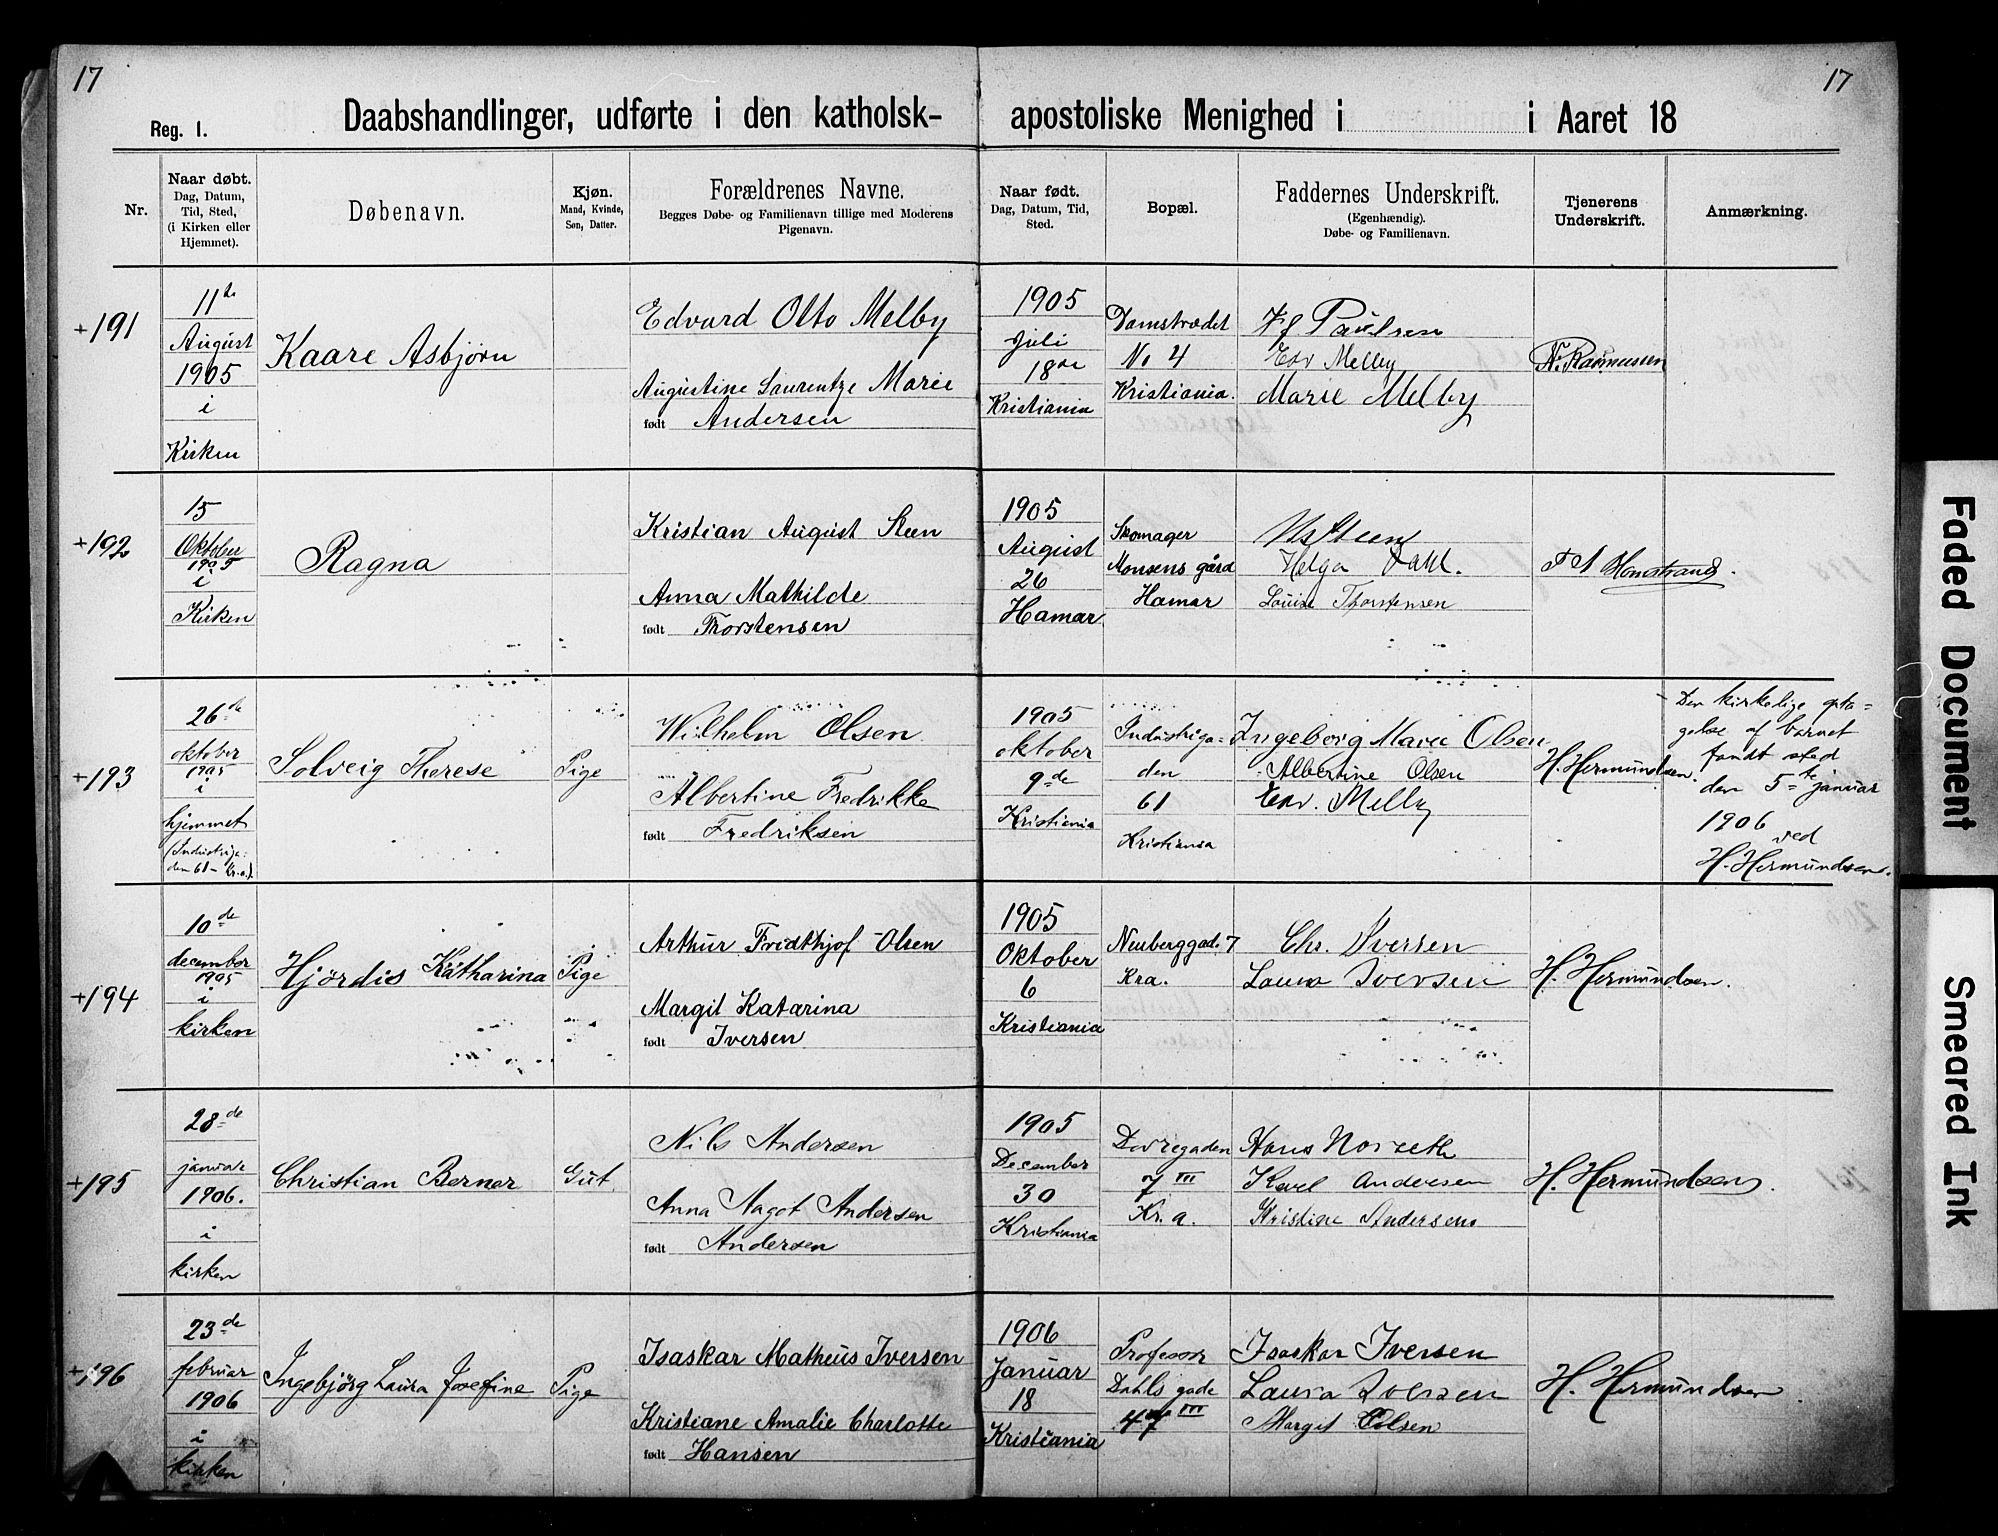 17
17
Reg. 1.
Daabshandlinger, udførte i den katholsk-
apostoliske Menighed i i Aaret 18
Nr.
Naar døbt.
Dag, Datum,
Tid, Sted,
(i Kirken eller
Hjemmet).
Døbenavn.
Kjøn.
Mand, Kvinde,
Søn, Datter.
Forældrenes Navne.
Begges Døbe- og Familienavn tillige med Moderens
Pigenavn.
Naar født.
Dag, Datum, Tid,
Sted.
Bopæl.
Faddernes Underskrift.
(Egenhændig).
Døbe- og Familienavn.
Tjenerens
Underskrift.
Anmærkning.
+191
11te
August
1905
i
Kirken
Kaare Asbjørn
Edvard Otto Melby
Augustine Laurentze Marie
født Andersen
1905
Juli
18de
Kristiania
Damstrædet
No 4
Kristiania.
Paulsen
Edv Melby
Marie Melby
N. Rasmussen
+192
15
Oktober
1905
i
Kirken
Ragna
Kristian August Steen
Anna Mathilde
født Thorstensen
1905
August
26
Hamar
Skomager
Monsens gård
Hamar
Steen
Helga Dahl.
Louise Thorstensen
+193
26de
oktober
1905
i
hjemmet
(Industriga-
den 61 - Kr.a.).
Solveig Therese
Pige
Wilhelm Olsen
Albertine Fredrikke
født Fredriksen
1905
oktober
9de
Kristiania
Industriga-
den
61
Kristiania
Ingeborg Marie Olsen
Albertine Olsen
Edv. Melby
H. Hermundsen.
Den kirkelige opta-
gelse af barnet
fandt sted
den 5te januar
1906
ved
H. Hermundsen.
+194
10de
december
1905
i
kirken
Hjørdis Katharina
Pige
Arthur Fridthjof Olsen
Margit Katarina
født Iversen
1905
Oktober
6
Kristiania
Neuberggad. 7
Kra.
Chr. Iversen
Laura Iversen
H. Hermundsen.
+195
28de
januar
1906.
i
kirken
Christian Berner
Gut
Nils Andersen
Anna Nagot Andersen
født Andersen
1905
December
30
Kristiania
Dovregaden
7 III
Kr.a.
Hans Norseth
Karel Andersen
Kristine Andersen
H. Hermundsen.
+196
23de
februar
1906
i
kirken
Ingebjørg Laura Josefine
Pige
Isaskar Matheus Iversen
Kristiane Amalie Charlotte
født Hansen
1906
Januar
18
Kristiania
Professor
Dahls gade
47 III
Isaskar Iversen
Laura Iversen
Margit Olsen
H. Hermundsen
Faded Document
Smeared Ink